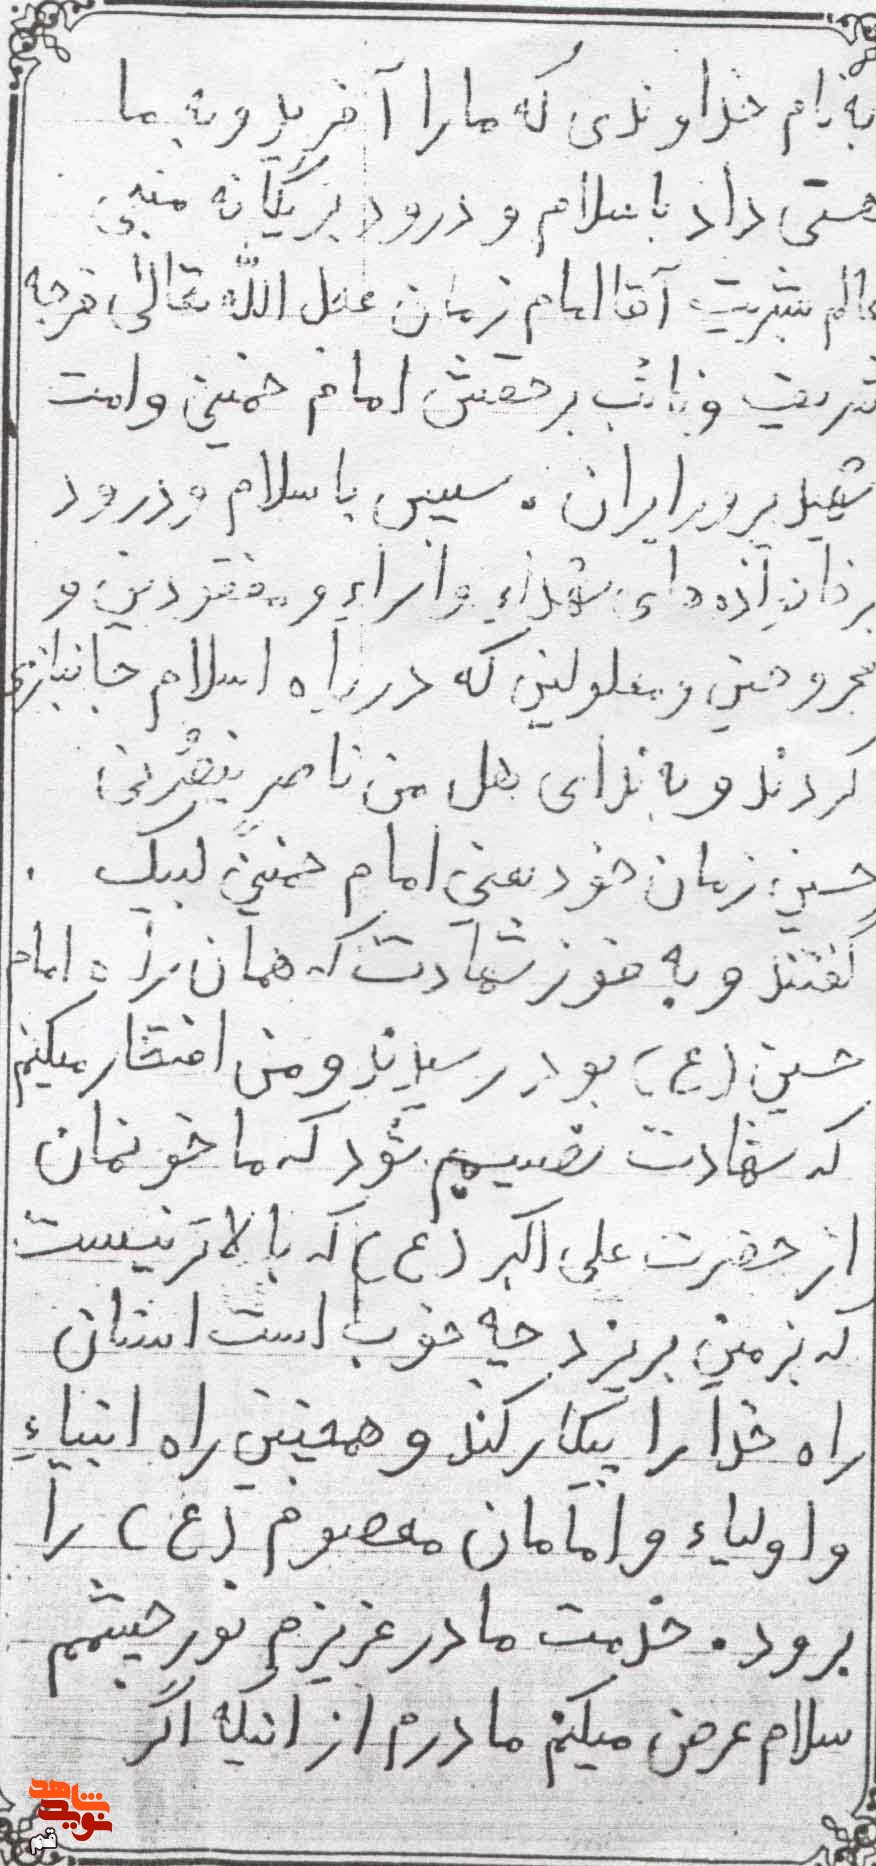 به نام خداوندی که ما را آفرید و به ما
هستی داد با سلام و درود بر یگانه منجی
عالم بشریت آقا امام زمان عجل الله تعالی فرجه
شریف و نائب برحقش امام خمینی و امت
شهید پرور ایران . سپس با سلام و درود
بر خانواده های شهداء و اسراء و مفقودین و
مجروحین و معلولین که در راه اسلام جانبازی
کردند و به ندای هل من ناصر ینصرنی
حسین زمان خود یعنی امام خمینی لبیک .
گفتند و به فوز شهادت که همان راه امام
حسین (ع) بود رسیدند و من افتخار میکنم
که شهادت نصیبم شود که ما خونمان
از حضرت علی اکبر (ع) که بالاتر نیست
که بزمین بریزد چه خوب است انسان
راه خدا را پیکار کند و همچنین راه انبیاء
و اولیاء و امامان معصوم (ع) را
برود . خدمت مادر عزیزم نور چشمم
سلام عرض میکنم مادرم از اینکه اگر
نوید شاهد
قم